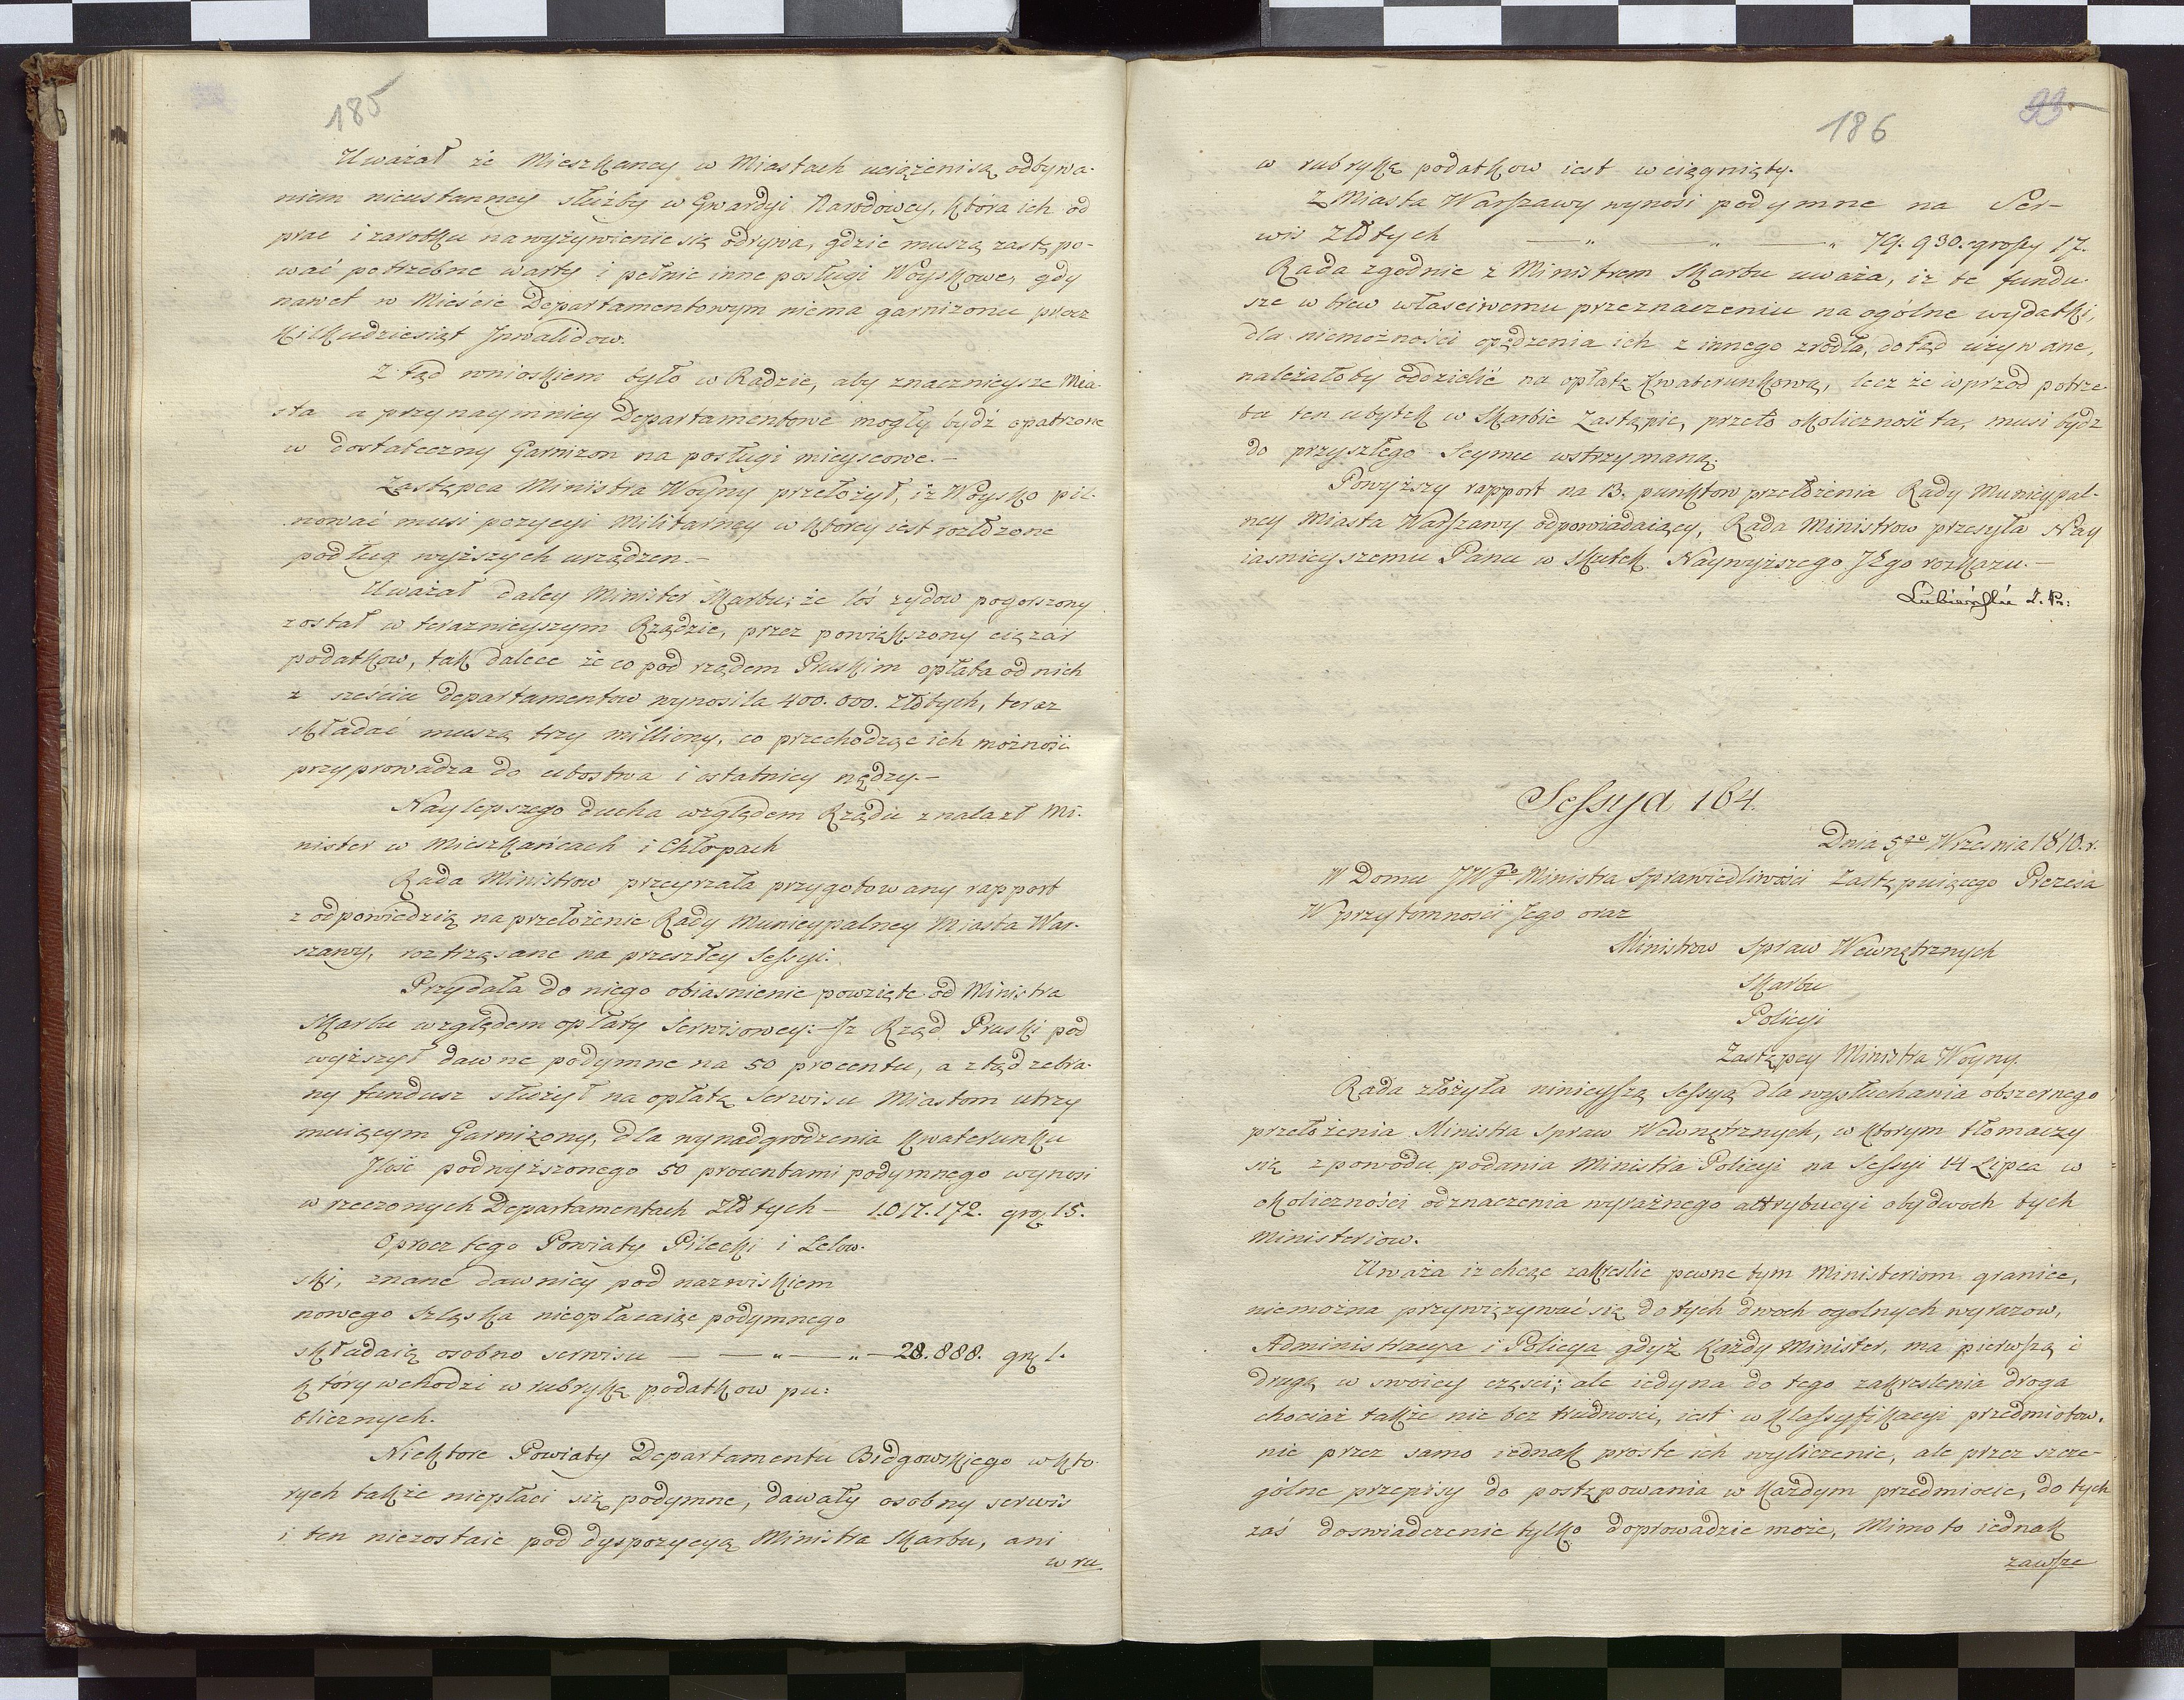 185
Uważał że Mieszkancy w Miastach uciążeni są odbywa-
niem nieustanney służby w Gwardyi Narodowey, ktora ich od
prac i zarobku na wyżywienie się odrywa, gdzie muszą zastępo-
wać potrzebne warty i pełnic inne posługi Woyskowe, gdy
nawet w Mieście Departamentowym niema garnizonu procz
kilkudziesiąt Jnwalidow.
Z tąd wnioskiem było w Radzie, aby znacznieysze Mia-
sta a przynaymniey Departamentowe mogły bydź opatrzone
w dostateczny Garnizon na posługi mieyscowe.-
Zastępca Ministra Woyny przełożył, iż Woysko pil-
nować musi pozycyi Militarney w ktorey iest rozłożone
podług wyższych urządzen.-
Uważał daley Minister Skarbu; że loś zydow pogorszony
został w teraznieyszym Rządzie, przez powiększony ciężar
podatkow, tak dalece że co pod rządem Pruskim opłata od nich
z sześciu departamentow wynosiła 400.000. Złotych, teraz
składać muszą trzy milliony, co przechodząc ich możność
przyprowadza do ubostwa i ostatniey nędzy.-
Naylepszego ducha względem Rządu znalazł Mi-
nister w Mieszkańcach i Chłopach
Rada Ministrow przeyrzała przygotowany rapport
z odpowiedzią na przełożenie Rady Municypalney Miasta War-
szawy, roztrząsane na przeszłey Sessyi.
Przydała do niego obiasnienie powzięte od Ministra
Skarbu względem opłaty Serwisowey:- Jż Rząd Pruski pod
wyższył dawne podymne na 50 procentu, a ztąd zebra-
ny fundusz służył na opłatę Serwisu Miastom utrzy
muiącym Garnizony, dla wynadgrodzenia kwaterunku
Jlość podwyższonego 50 procentami podymnego wynosi
w rzeczonych Departamentach Złotych - 1.017.172. gro. 15.
Oprocz tego Powiaty Pilecki i Lelow-
ski, znane dawniey pod nazwiskiem
nowego Szląska nieopłacaiąc podymnego
składaią osobno serwisu — — „ — „ — 28.888. gr. 1.
ktory wchodzi w rubrykę podatkow pu:
blicznych.
Niektore Powiaty Departamentu Bidgowskiego w kto-
rych także niepłaci się podymne, dawały osobny serwis
i ten niezostaie pod dyspozycyą Ministra Skarbu, ani
w ru
186
93
w rubrykę podatkow iest wciągnięty.
Z Miasta Warszawy wynosi podymne na Ser-
wis Złotych —„ — „ — „ 79.930. groszy 17.
Rada zgodnie z Ministrem Skarbu uważa, iż te fundu-
sze w brew właściwemu przeznaczeniu na ogólne wydatki,
dla niemożności opędzenia ich z innego zrodła, dotąd używane,
należałoby oddzielić na opłatę Kwaterunkową, lecz że wprzod potrze
ba ten ubytek w Skarbie Zastąpic, przeto okoliczność ta, musi bydz
do przyszłego Seymu wstrzymaną.
Powyższy rapport na 13. punktow przełożenia Rady Municypal-
ney Miasta Warszawy odpowiadaiący, Rada Ministrow przesyła Nay
iasnieyszemu Panu w skutek Naywyższego JEgo rozkazu.-
Łubieński Z. Pr:
Sessyja 164.
Dnia 5go Wrzesnia 1810.r.
W Domu JWgo Ministra Sprawiedliwości Zastępuiącego Prezesa
W przytomnosci Jego oraz
Ministrow Spraw Wewnętrznych
Skarbu
Policyi
Zastępcy Ministra Woyny.
Rada złożyła ninieyszą Sessyą dla wysłuchania obszernego
przełożenia Ministra Spraw Wewnętrznych, w ktorym tłomaczy
się z powodu podania Ministra Policyi na Sessyi 14 Lipca w
okoliczności odznaczenia wyrażnego attrybucyi obydwoch tych
Ministeriow.
Uważa iż chcąc zakreslic pewne tym Ministeriom granice,
niemożna przywięzywać się do tych dwoch ogolnych wyrazow,
Administracya i Policya gdyż każdy Minister, ma pierwszą i
drugą w swoiey części; ale iedyna do tego zakreslenia droga
chociaż także nie bez trudnosci, iest w klassyfikacyi przedmiotow,
nie przez samo iednak proste ich wyliczenie, ale przez szcze-
gólne przepisy do postępowania w każdym przedmiocie, do tych
zaś doswiadczenie tylko doprowadzic może, Mimo to iednak
zawsze